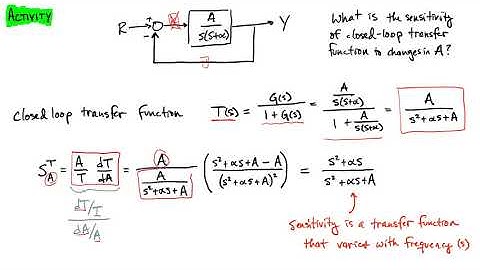 ACTIVITY
R + - A / s(s+α) Y
What is the sensitivity
of closed-loop transfer
function to changes in A?
Closed loop transfer function T(s) = G(s) / 1 + G(s) = A / s(s+α) / 1 + A / s(s+α) = A / s² + αs + A
S_A^T = A/T dT/dA = A / A / s² + αs + A ( s² + αs + A - A / (s² + αs + A)² ) = s² + αs / s² + αs + A
dT/T
dA/A
Sensitivity is a transfer function
that varies with frequency (s)